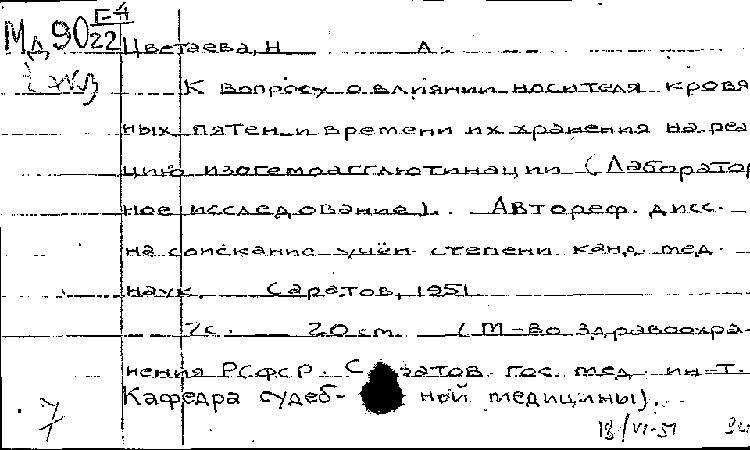 Мд 90 Г-4
22
Цветаева, Н А.
2 экз
К вопросу о влиянии носителя кровя
ных пятен и времени их хранения на реа
цию изогемоагглютинации (Лаборатор
ное исследование). Автореф. дисс.
на соискание учён степени канд мед.
наук. Саратов, 1951
7с. 20 cm. (М-во здравоохра-
нения РСФСР. С затов гос. мед. ин-т.
Кафедра судеб- ной медицины).
7
18/VI-51